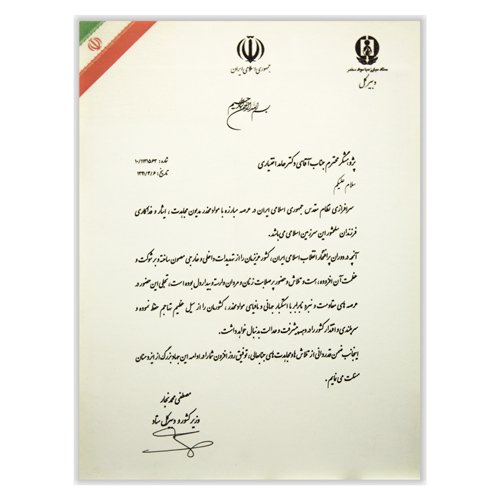 جمهوری اسلامی ایران
ستاد مبارزه با مواد مخدر
دبیرکل
بسم الله الرحمن الرحیم
شماره: ۱۰/۱۲۱۵۶۳
تاریخ: ۱۳۹۱/۴/۶
پژوهشگر محترم جناب آقای دکتر حامد اختیاری
سلام علیکم
سرافرازی نظام مقدس جمهوری اسلامی ایران در عرصه مبارزه با مواد مخدر مدیون مجاهدت، ایثار و فداکاری
فرزندان سلحشور این سرزمین اسلامی می‌باشد.
آنچه در دوران پر افتخار انقلاب اسلامی ایران، کشور عزیزمان را از تهدیدات داخلی و خارجی مصون ساخته و بر شوکت و
عظمت آن افزوده، همت و تلاش و حضور پر صلابت زنان و مردان وارسته و بیدار دل بوده است، تجلی این حضور در
عرصه های مقاومت و نبرد نابرابر با استکبار جهانی و مافیای مواد مخدر، کشورمان را از سیل عظیم تهاجم حفظ نموده و
سربلندی و اقتدار کشور را در جبهه پیشرفت و عدالت به دنبال خواهد داشت.
اینجانب ضمن قدردانی از تلاش ها و مجاهدت های جنابعالی، توفیق روز افزون شما را در ادامه این جهاد بزرگ از ایزد منان
مسئلت می نمایم.
مصطفی محمد نجار
وزیر کشور و دبیرکل ستاد